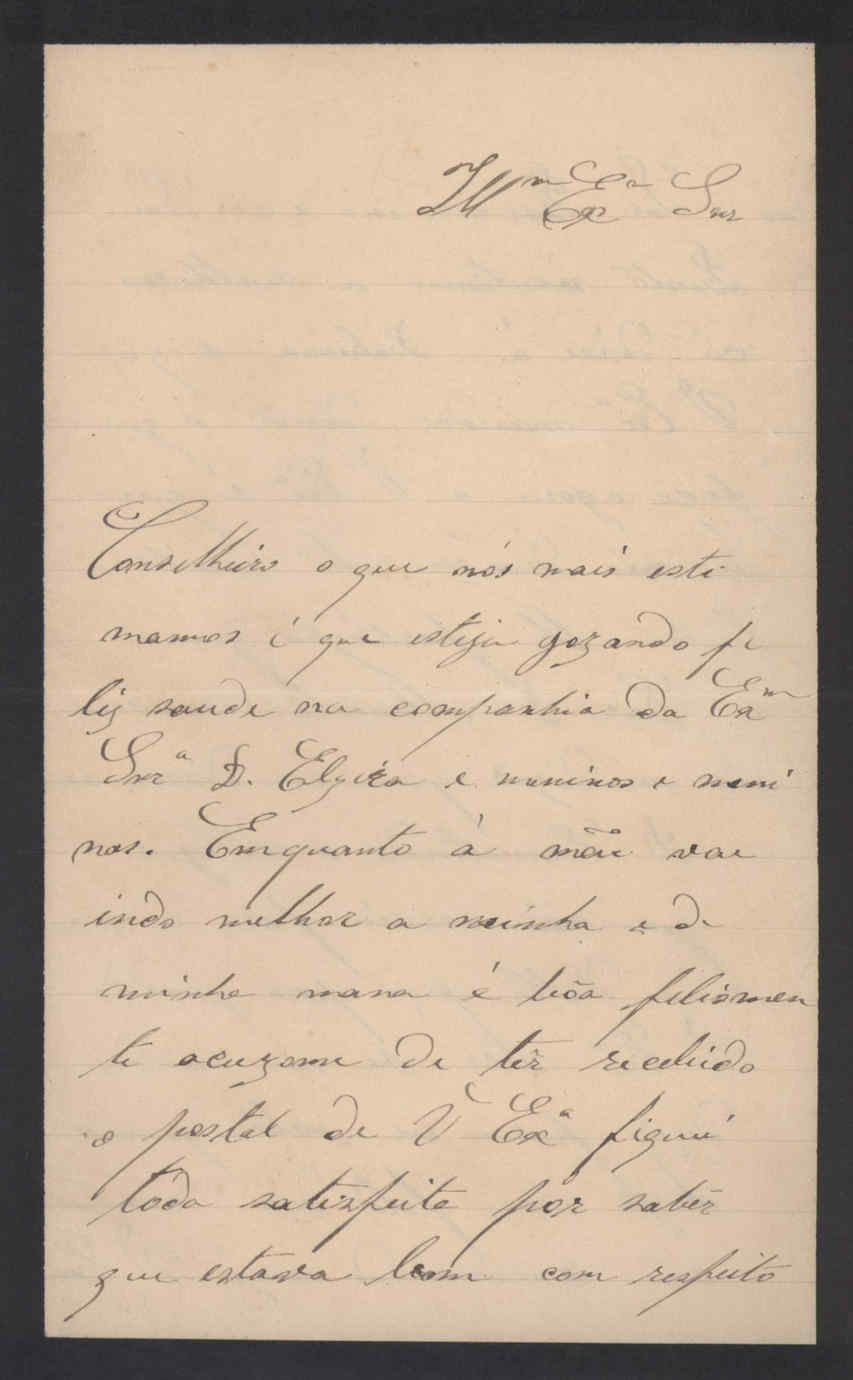 Illmº Exº Snr
Conselheiro o que nós mais esti
mamos é que esteja gozando fi
liz saude na companhia da Exm
Snrª D. Elzira e meninos e meni
nas. Emquanto á mãe vae
indo melhor a minha e de
minha mana é bôa felismen
te acuzome de ter recebido
o postal de V Exª fiquei
tôda satisfeita pôr sabêr
que estava bem com respeito